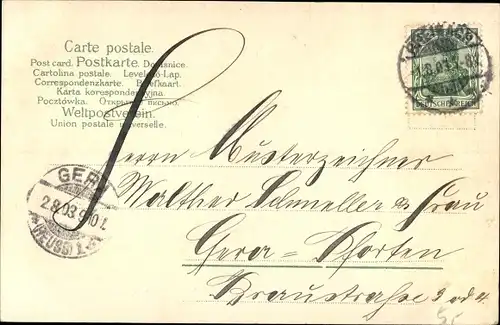 Carte postale.
Post card. Postkarte. Dopisnice.
Cartolina postale. Levelező-Lap.
Correspondenzkarte. Briefkaart.
Karta korespondencyjna.
Pocztówka. Открытое письмо.
Weltpostverein.
Union postale universelle.
DEUTSCHES REICH
GERA
2.8.03.9-10 V.
(REUSS)
Herrn Musterzeichner
Walther Schmeller & Frau
Gera = Pforten
Kraustraße 3 od 4.